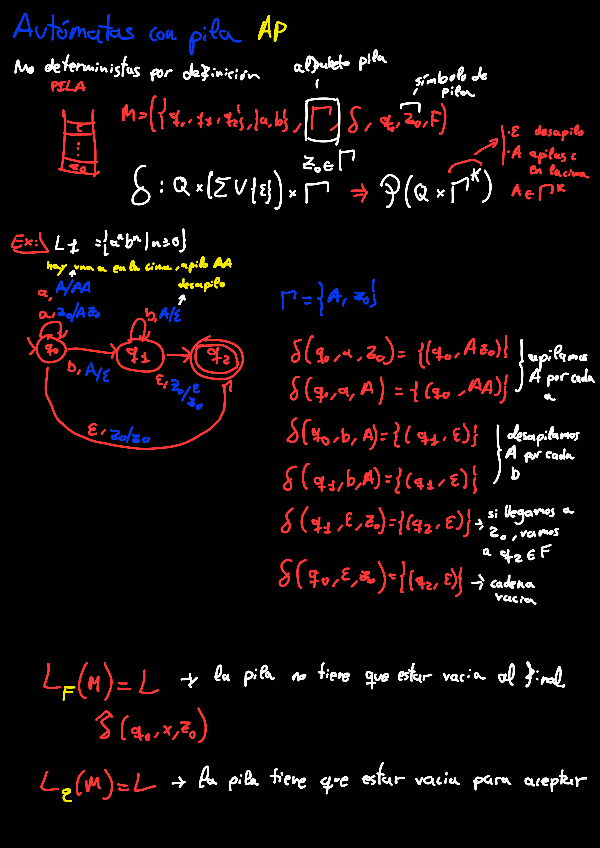 Autómatas con pila AP
No deterministas por definición
alfabeto pila
símbolo de pila
PILA
M=({q0, q1, q2}, {a,b}, Γ, δ, q0, z0, F)
z0 ∈ Γ
δ : Q × (Σ ∪ {ε}) × Γ ⇒ P(Q × Γ*)
· ε desapilo
· A apilas c
en la cima
A ∈ Γ*
z0
Ex:
L1 = {aⁿbⁿ | n≥0}
hay una a en la cima, apilo AA
desapilo
a, A/AA
a, z0/Az0
b, A/ε
q0
q1
q2
b, A/ε
ε, z0/ε
z0
ε, z0/z0
Γ = {A, z0}
δ(q0, a, z0) = {(q0, Az0)}
δ(q0, a, A) = {(q0, AA)}
apilamos
A por cada
a
δ(q0, b, A) = {(q1, ε)}
δ(q1, b, A) = {(q1, ε)}
desapilamos
A por cada
b
δ(q1, ε, z0) = {(q2, ε)} → si llegamos a
z0, vamos
a q2 ∈ F
δ(q0, ε, z0) = {(q2, ε)} → cadena
vacia
L_F(M) = L → la pila no tiene que estar vacia al final
δ̂(q0, x, z0)
L_ε(M) = L → la pila tiene que estar vacia para aceptar